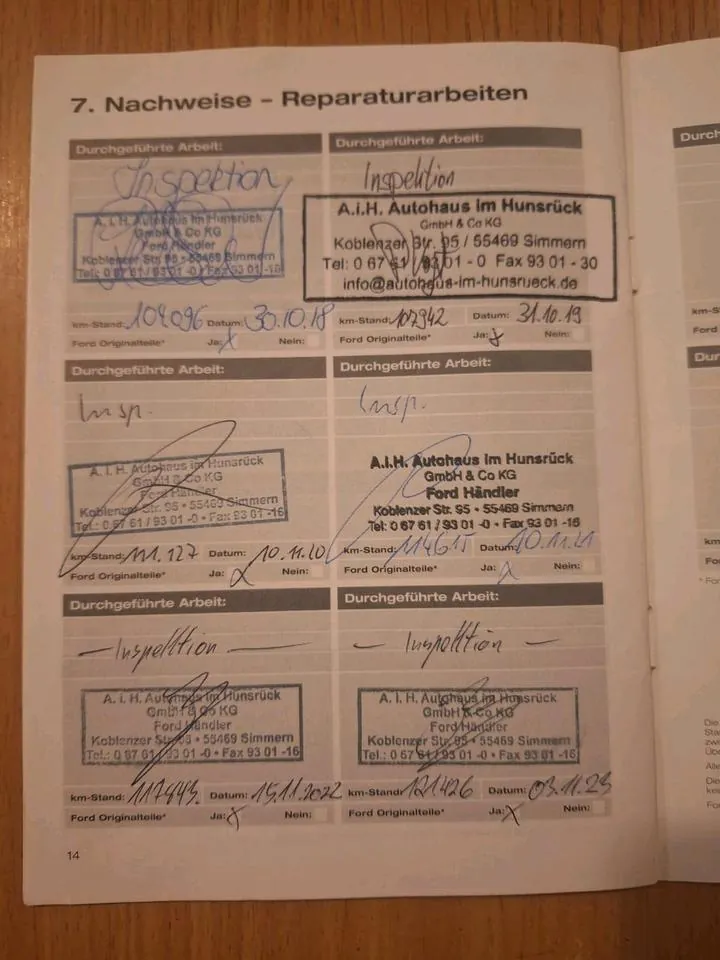 7. Nachweise – Reparaturarbeiten
Durchgeführte Arbeit:
Inspektion
A.i.H. Autohaus im Hunsrück
GmbH & Co KG
Ford Händler
Koblenzer Str. 95 • 55469 Simmern
Tel.: 0 67 61 / 93 01 -0 • Fax 93 01 -16
km-Stand: 104096 Datum: 30.10.18
Ford Originalteile* Ja: x Nein:
Durchgeführte Arbeit:
Inspektion
A.i.H. Autohaus im Hunsrück
GmbH & Co KG
Koblenzer Str. 95 / 55469 Simmern
Tel: 0 67 61 / 93 01 - 0 Fax 93 01 - 30
info@autohaus-im-hunsrueck.de
km-Stand: 107942 Datum: 31.10.19
Ford Originalteile* Ja: x Nein:
Durchgeführte Arbeit:
Insp.
A.i.H. Autohaus im Hunsrück
GmbH & Co KG
Ford Händler
Koblenzer Str. 95 • 55469 Simmern
Tel.: 0 67 61 / 93 01 -0 • Fax 93 01 -16
km-Stand: 111.127 Datum: 10.11.20
Ford Originalteile* Ja: x Nein:
Durchgeführte Arbeit:
Insp.
A.i.H. Autohaus im Hunsrück
GmbH & Co KG
Ford Händler
Koblenzer Str. 95 • 55469 Simmern
Tel.: 0 67 61 / 93 01 -0 • Fax 93 01 -16
km-Stand: 114615 Datum: 10.11.21
Ford Originalteile* Ja: x Nein:
Durchgeführte Arbeit:
– Inspektion –
A. i. H. Autohaus im Hunsrück
GmbH & Co KG
Ford Händler
Koblenzer Str. 95 • 55469 Simmern
Tel.: 0 67 61 / 93 01 -0 • Fax 93 01 -16
km-Stand: Datum: 15.11.2022
Ford Originalteile* Ja: x Nein:
Durchgeführte Arbeit:
– Inspektion –
A. i. H. Autohaus im Hunsrück
GmbH & Co KG
Ford Händler
Koblenzer Str. 95 • 55469 Simmern
Tel.: 0 67 61 / 93 01 -0 • Fax 93 01 -16
km-Stand: 121426 Datum: 03.11.23
Ford Originalteile* Ja: x Nein:
14
Durch
km-S
Ford
Dur
km
Fo
* For
Die
Sta
zwe
Übe
Alle
Die
kei
For